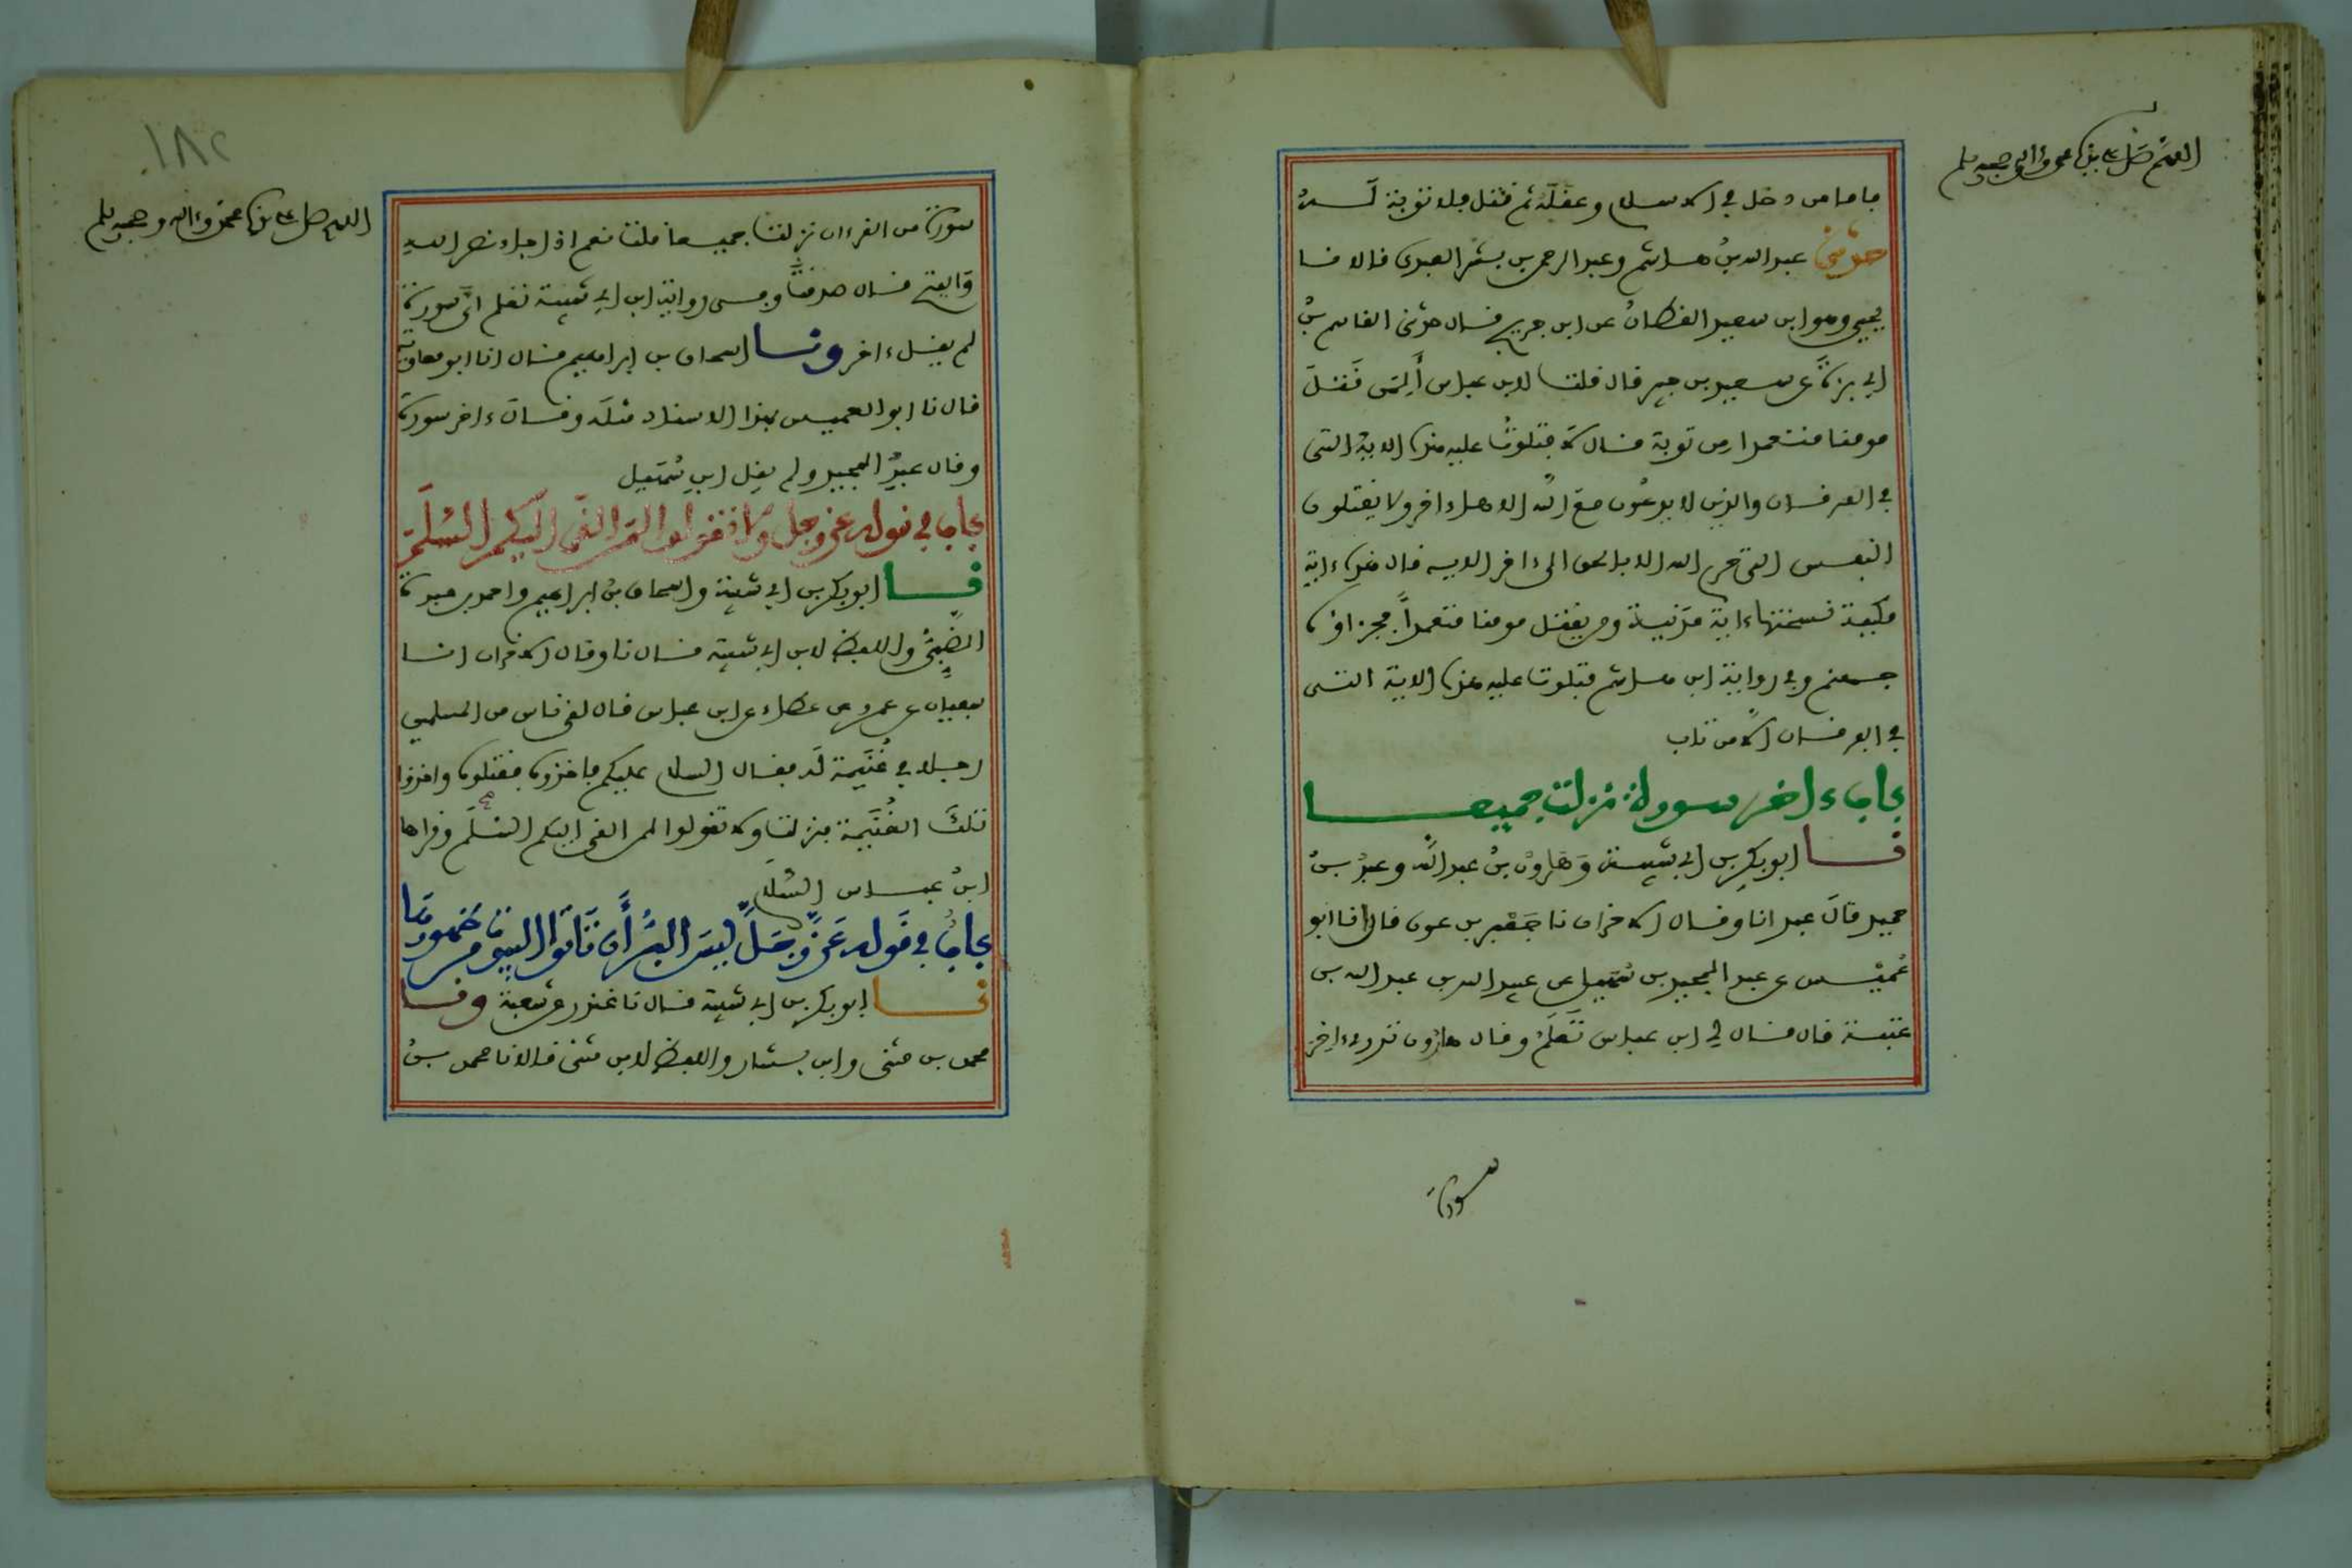 اللهم صل على نبينا محمد وءاله وصحبه وسلم
فاما من دخل في الاسلام وعقله ثم قتل فلا توبة له
حدثني عبد الله بن هاشم وعبد الرحمن بن بشر العبدي قالا نا
يحيى وهو ابن سعيد القطان عن ابن جريج قال حدثني القاسم بن
ابي بزة عن سعيد بن جبير قال قلت لابن عباس ألمن قتل
مومنا متعمدا من توبة قال لا فتلوت عليه هذه الاية التي
في الفرقان والذين لا يدعون مع الله الاها ءاخر ولا يقتلون
النفس التي حرم الله الا بالحق الى ءاخر الاية قال هذه ءاية
مكية نسختها ءاية مدنية ومن يقتل مومنا متعمدا فجزاؤه
جهنم وفي رواية ابن هاشم فتلوت عليه هذه الاية التي
في الفرقان الا من تاب
باب ءاخر سورة نزلت جميعا
نا ابو بكر بن ابي شيبة وهارون بن عبد الله وعبد بن
حميد قال عبد انا وقال الاخران نا جعفر بن عون قال انا ابو
عميس عن عبد المجيد بن سهيل عن عبيد الله بن عبد الله بن
عتبة قال قال لي ابن عباس تعلم وقال هارون تدري ءاخر
سورة
١٨٢
اللهم صل على نبينا محمد وءاله وصحبه وسلم
سورة من القرءان نزلت جميعا قلت نعم اذا جاء نصر الله
والفتح قال صدقت وفي رواية ابن ابي شيبة تعلم اي سورة
لم يقل ءاخر ونا اسحاق بن ابراهيم قال انا ابو معاوية
قال نا ابو العميس بهذا الاسناد مثله وقال ءاخر سورة
وقال عبد المجيد ولم يقل ابن سهيل
باب في قوله عز وجل ولا تقولوا لمن القى اليكم السلم
نا ابو بكر بن ابي شيبة واسحاق بن ابراهيم واحمد بن عبدة
الضبي واللفظ لابن ابي شيبة قال نا وقال الاخران انا
سفيان عن عمرو عن عطاء عن ابن عباس قال لقي ناس من المسلمين
رجلا في غنيمة له فقال السلام عليكم فاخذوه فقتلوه واخذوا
تلك الغنيمة فنزلت ولا تقولوا لمن القى اليكم السلم وقراها
ابن عباس السلام
باب في قوله عز وجل ليس البر أن تاتوا البيوت من ظهورها
نا ابو بكر بن ابي شيبة قال نا غندر عن شعبة ونا
محمد بن مثنى وابن بشار واللفظ لابن مثنى قالا نا محمد بن